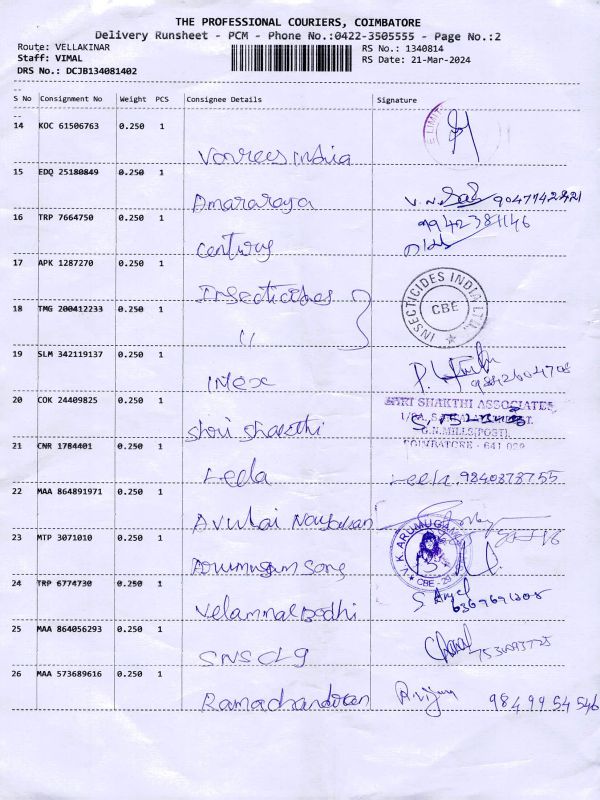 THE PROFESSIONAL COURIERS, COIMBATORE
Delivery Runsheet - PCM - Phone No.:0422-3505555 - Page No.:2
Route: VELLAKINAR
RS No.: 1340814
Staff: VIMAL
RS Date: 21-Mar-2024
DRS No.: DCJB134081402
S No Consignment No Weight PCS Consignee Details Signature
14 KOC 61506763 0.250 1
E LIMIT
India
15 EDQ 25180849 0.250 1
Amararaja V.N. 9047142821
16 TRP 7664750 0.250 1
9942381146
Century
17 APK 1287270 0.250 1
Insecticides
INSECTICIDES INDIA LTD. CBE
18 TMG 200412233 0.250 1
"
19 SLM 342119137 0.250 1
Intex 9842604708
20 COK 24409825 0.250 1
SHRI SHAKTHI ASSOCIATES,
G.N.MILLS(POST),
Shri Shakthi
COIMBATORE - 641 029
21 CNR 1784401 0.250 1
Leela Leela. 9840878755
22 MAA 864891971 0.250 1
23 MTP 3071010 0.250 1
V.K.ARUMUGA
CBE - 29
Arumugam Sons
24 TRP 6774730 0.250 1
Velammal Bodhi
25 MAA 864056293 0.250 1
SNS CLG
26 MAA 573689616 0.250 1
Ramachandran 9849954546